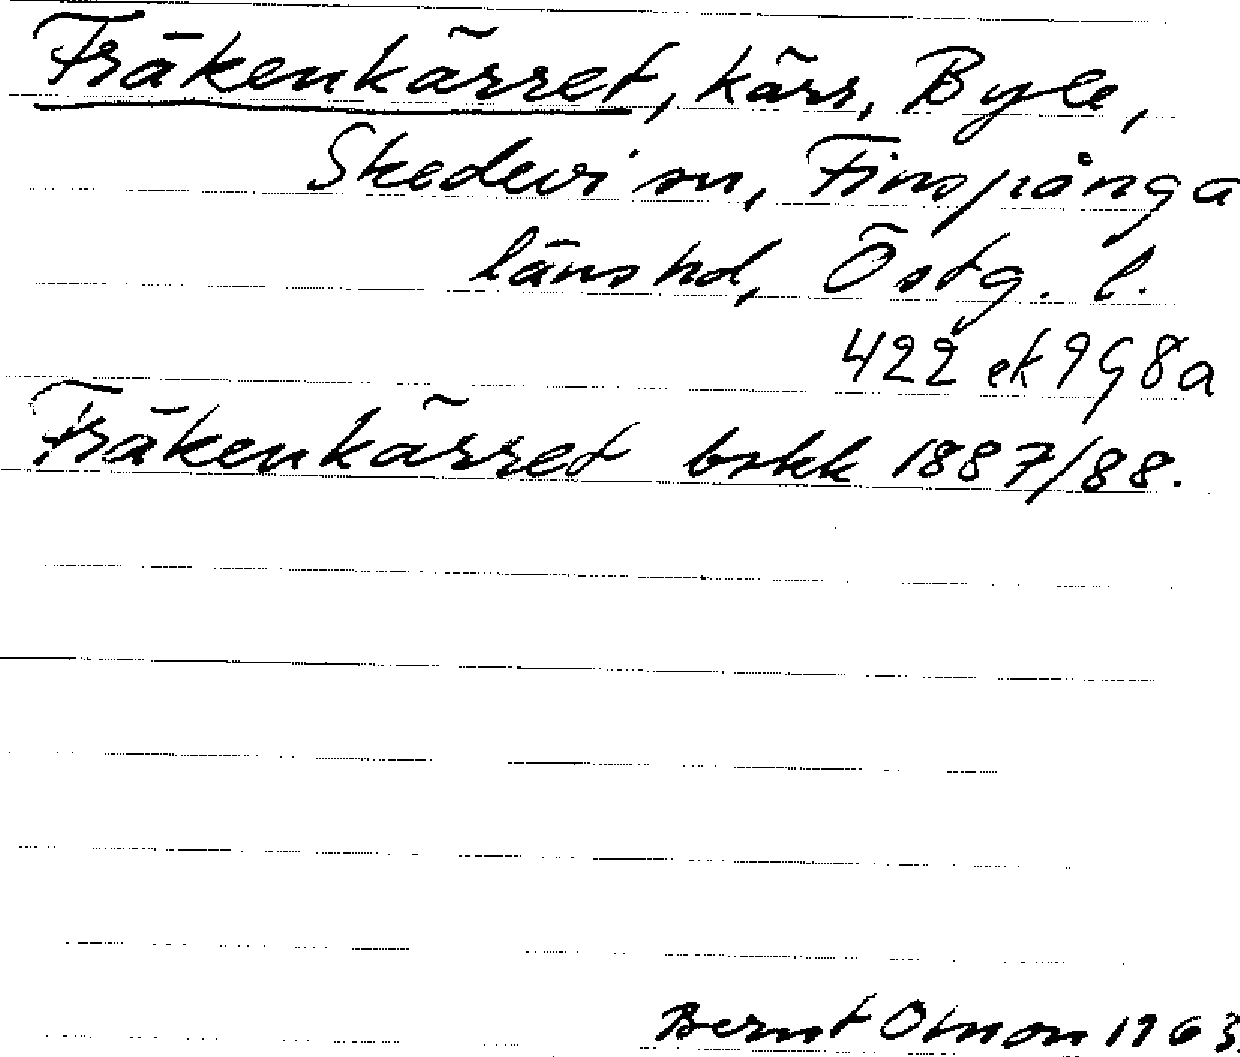 Fräkenkärret, kärr, Byle,
Skedevi sn, Finspånga
länshd, Östg. l.
422 ek 9 G 8 a
Fräkenkärret bskk 1887/88.
Bernt Olsson 1963.